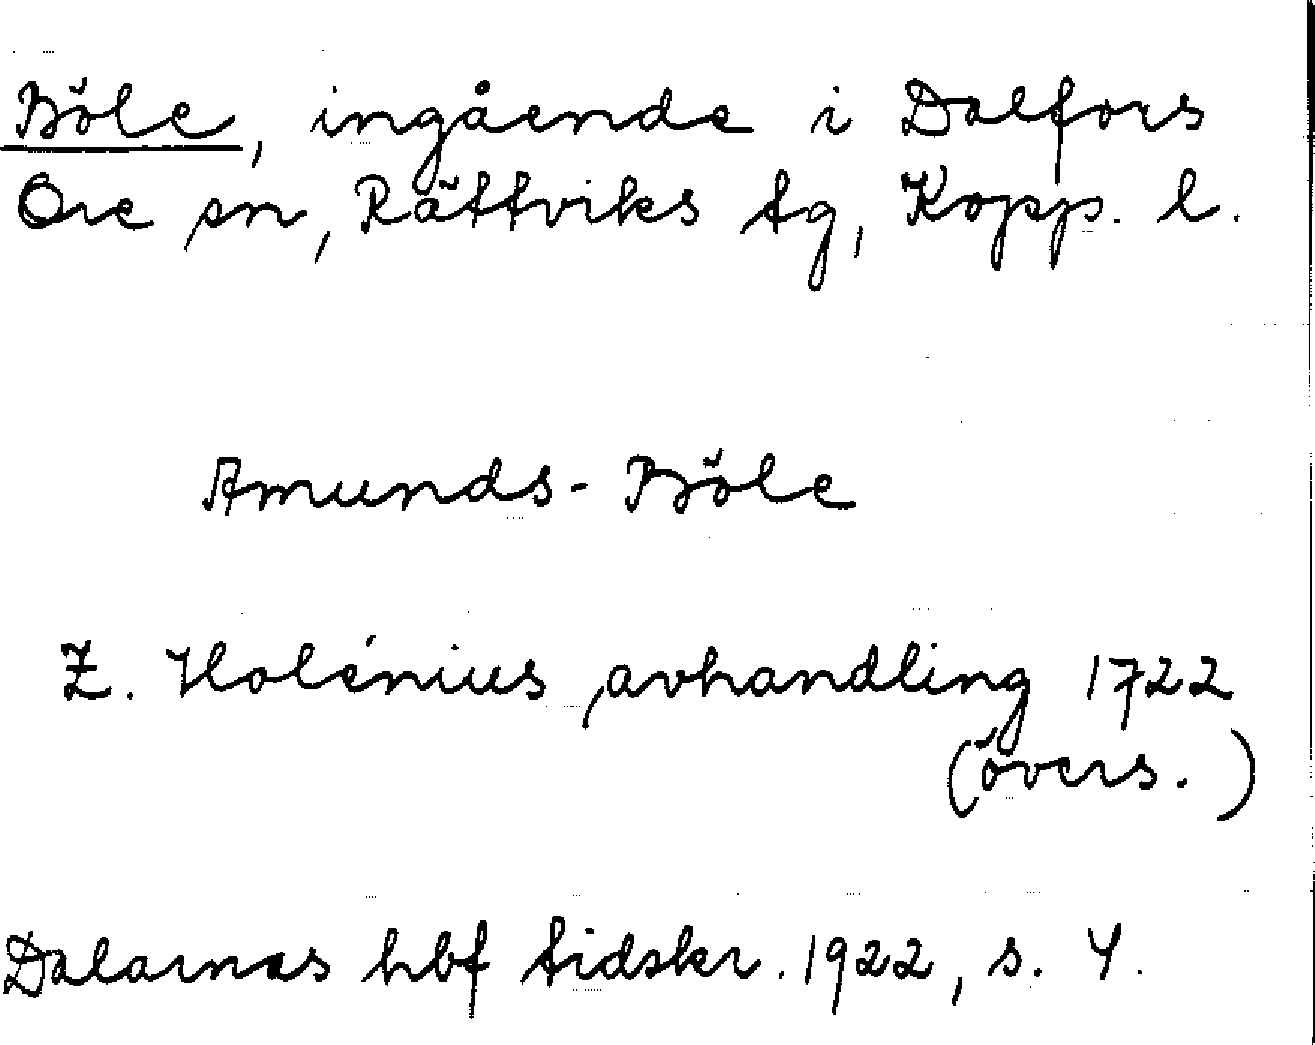 Böle, ingående i Dalfors
Ore sn, Rättviks tg, Kopp. l.
Amunds-Böle
Z. Holénius, avhandling 1722
(övers.)
Dalarnas hbf tidskr. 1922, s. 4.